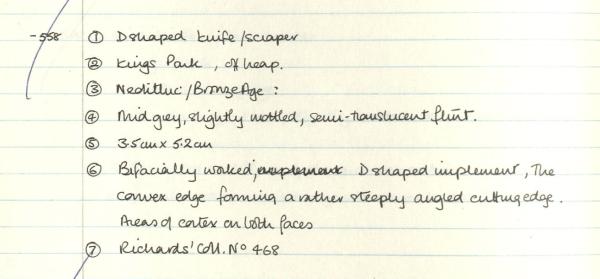 -558 ① D shaped knife/scraper
② Kings Park, off heap.
③ Neolithic/Bronze Age :
④ Mid grey, slightly mottled, semi-translucent flint.
⑤ 3.5cm x 5.2cm
⑥ Bifacially worked, implement D shaped implement, The
convex edge forming a rather steeply angled cutting edge.
Areas of cortex on both faces
⑦ Richards' Coll. Nº 468